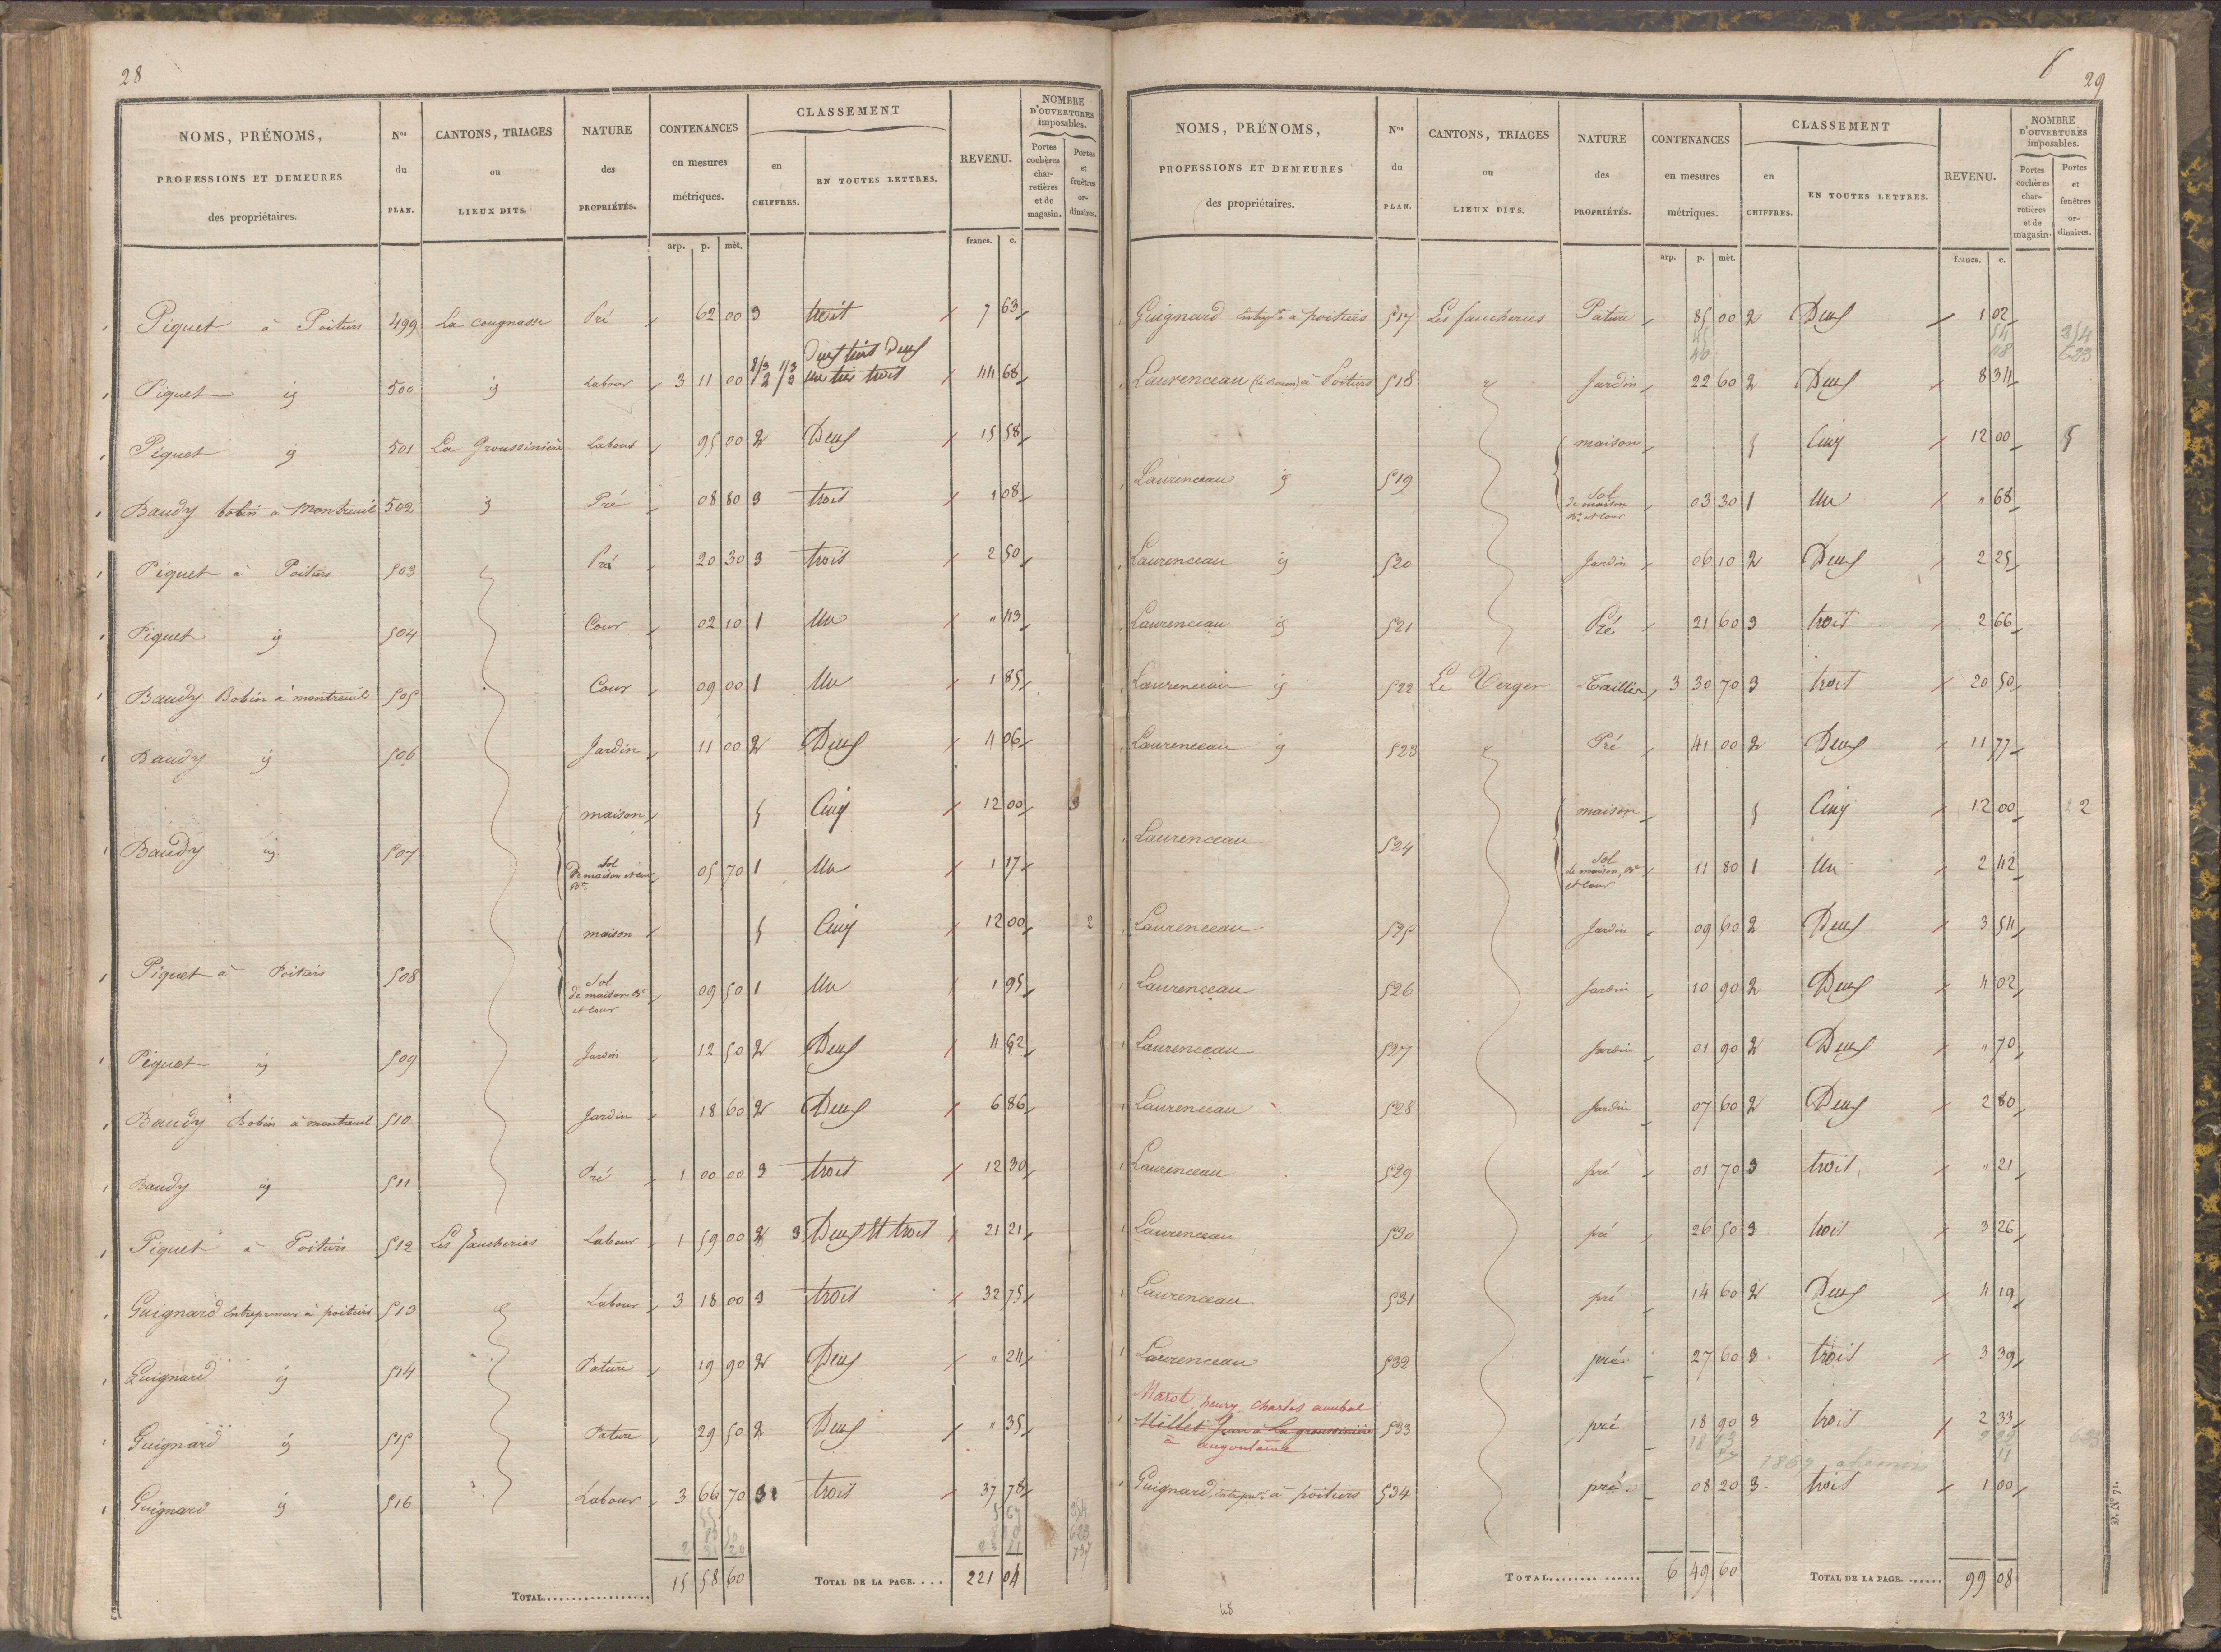 28
NOMS, PRÉNOMS, PROFESSIONS ET DEMEURES des propriétaires. | Nos du PLAN. | CANTONS, TRIAGES ou LIEUX DITS. | NATURE des PROPRIÉTÉS. | CONTENANCES en mesures métriques. | CLASSEMENT en CHIFFRES. | EN TOUTES LETTRES. | REVENU. | NOMBRE D'OUVERTURES imposables. Portes cochères charretières et de magasin. | Portes et fenêtres ordinaires.
arp. p. mèt. francs. c.
Piquet à Poitiers 499 La Cougnasse Pré 62 00 3 trois 7 63
Piquet ig 500 ig Labour 3 11 00 2/3 2 1/3 3 Deux tiers Deux un tier trois 44 68
Piquet ig 501 La Groussinière Labour 95 00 2 Deux 15 58
Baudy bobin à Montreuil 502 ig Pré 08 80 3 trois 1 08
Piquet à Poitiers 503 Pré 20 30 3 trois 2 50
Piquet ig 504 Cour 02 10 1 Un " 43
Baudy Bobin à montreuil 505 Cour 09 00 1 Un 1 85
Baudy ig 506 Jardin 11 00 2 Deux 4 06
maison 5 Cinq 12 00 3
Baudy ig 507 Sol de maison et cour Bt. 05 70 1 Un 1 17
maison 5 Cinq 12 00 2
Piquet à Poitiers 508 Sol de maison Bt et cour 09 50 1 Un 1 95
Piquet ig 509 Jardin 12 50 2 Deux 4 62
Baudy Bobin à montreuil 510 Jardin 18 60 2 Deux 6 86
Baudy ig 511 Pré 1 00 00 3 trois 12 30
Piquet à Poitiers 512 Les faucheries Labour 1 59 00 2 3 Deux Et trois 21 21
Guignard Entrepreneur à poitiers 513 Labour 3 18 00 3 trois 32 75
Guignard ig 514 Pature 19 90 2 Deux " 24
Guignard ig 515 Pature 29 50 2 Deux " 35
Guignard ig 516 Labour 3 66 70 3 trois 37 78
2 31 20
TOTAL 15 58 60 TOTAL DE LA PAGE.... 221 04
29
NOMS, PRÉNOMS, PROFESSIONS ET DEMEURES des propriétaires. | Nos du PLAN. | CANTONS, TRIAGES ou LIEUX DITS. | NATURE des PROPRIÉTÉS. | CONTENANCES en mesures métriques. | CLASSEMENT en CHIFFRES. | EN TOUTES LETTRES. | REVENU. | NOMBRE D'OUVERTURES imposables. Portes cochères charretières et de magasin. | Portes et fenêtres ordinaires.
arp. p. mèt. francs. c.
Guignard à poitiers 517 Les faucheries Pature 85 00 2 Deux 1 02
Laurenceau (le Baron) à Poitiers 518 Jardin 22 60 2 Deux 8 34
maison 5 Cinq 12 00 5
Laurenceau ig 519 Sol de maison Bt. et cour 03 30 1 Un " 68
Laurenceau ig 520 Jardin 06 10 2 Deux 2 25
Laurenceau ig 521 Pré 21 60 3 trois 2 66
Laurenceau ig 522 Le Verger Taillis 3 30 70 3 trois 20 50
Laurenceau ig 523 Pré 41 00 2 Deux 11 77
maison 5 Cinq 12 00 2
Laurenceau 524 Sol de maison, Bt et cour 11 80 1 Un 2 42
Laurenceau 525 Jardin 09 60 2 Deux 3 54
Laurenceau 526 Jardin 10 90 2 Deux 4 02
Laurenceau 527 Jardin 01 90 2 Deux " 70
Laurenceau 528 Jardin 07 60 2 Deux 2 80
Laurenceau 529 pré 01 70 3 trois " 21
Laurenceau 530 pré 26 50 3 trois 3 26
Laurenceau 531 pré 14 60 2 Deux 4 19
Laurenceau 532 pré 27 60 3 trois 3 39
Marot, henry Charles annibal
Millet Jean à La groussinière 533 pré 18 90 3 trois 2 33
à angoulême
1869 chemin
Guignard à poitiers 534 pré 08 20 3 trois 1 00
TOTAL 6 49 60 TOTAL DE LA PAGE...... 99 08
48